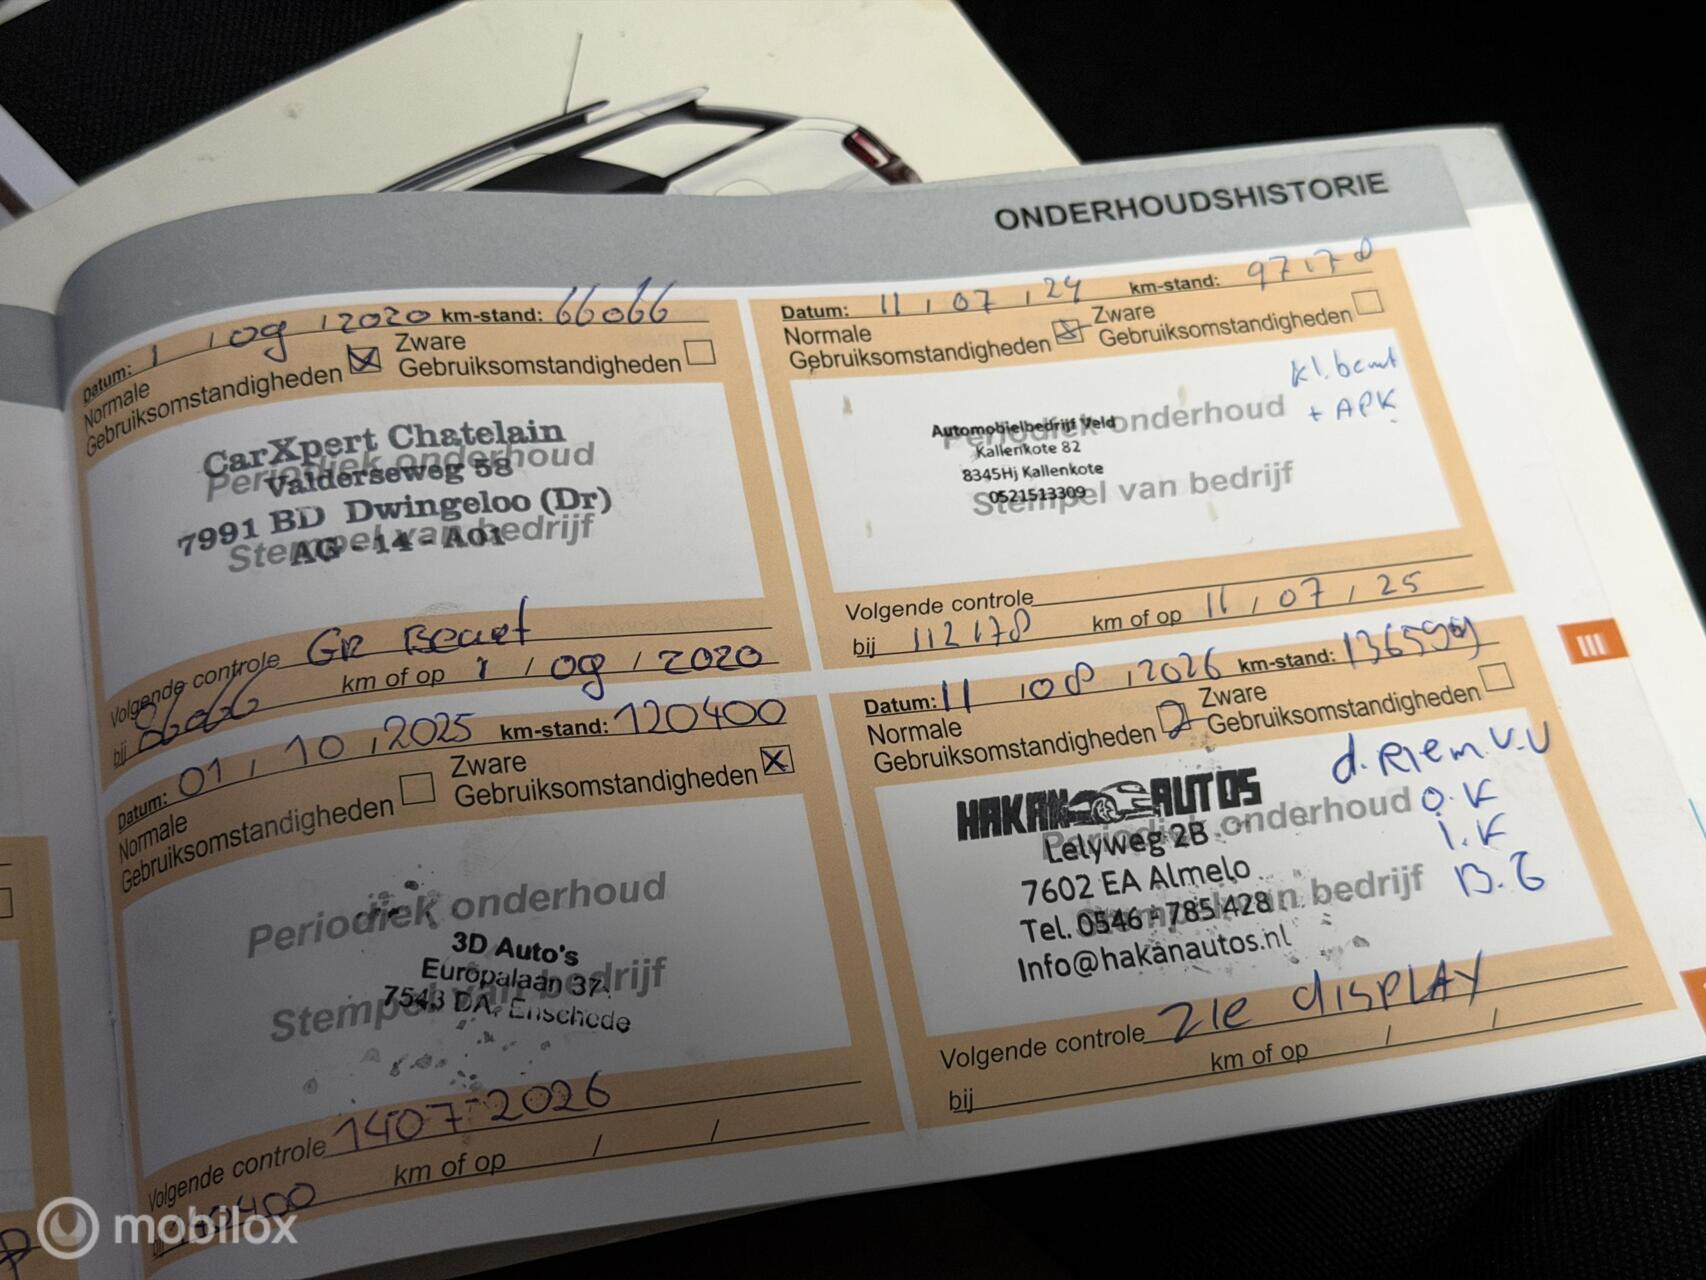 ONDERHOUDSHISTORIE
Datum: 1 / 09 / 2020 km-stand: 66066
Normale
Gebruiksomstandigheden
Zware
Gebruiksomstandigheden
CarXpert Chatelain
Periodiek onderhoud
Valderseweg 58
7991 BD Dwingeloo (Dr)
Stempel van bedrijf
AG - 14 - A01
Volgende controle GR Beurt
bij km of op 1 / 09 / 2020
Datum: 11 / 07 / 24 km-stand: 97178
Normale
Gebruiksomstandigheden
Zware
Gebruiksomstandigheden
kl. beurt
+ APK
Periodiek onderhoud
Automobielbedrijf Veld
Kallenkote 82
8345Hj Kallenkote
0521513309
Stempel van bedrijf
Volgende controle
bij 112178 km of op 11 / 07 / 25
Datum: 01 / 10 / 2025 km-stand: 120400
Normale
Gebruiksomstandigheden
Zware
Gebruiksomstandigheden
Periodiek onderhoud
3D Auto's
Europalaan 37
Stempel van bedrijf
7543 DA, Enschede
Volgende controle 1407-2026
km of op / /
Datum: 11 / 08 / 2026 km-stand:
Normale
Gebruiksomstandigheden
Zware
Gebruiksomstandigheden
d. Riem. V.V
HAKAN AUTOS
Periodiek onderhoud O.K
Lelyweg 2B
I.K
7602 EA Almelo
B.G
Stempel van bedrijf
Tel. 0546 - 785 428
Info@hakanautos.nl
Volgende controle Zie display
bij km of op / /
III
mobilox